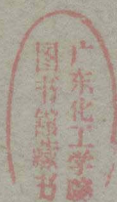 广东化工学院
图书馆藏书